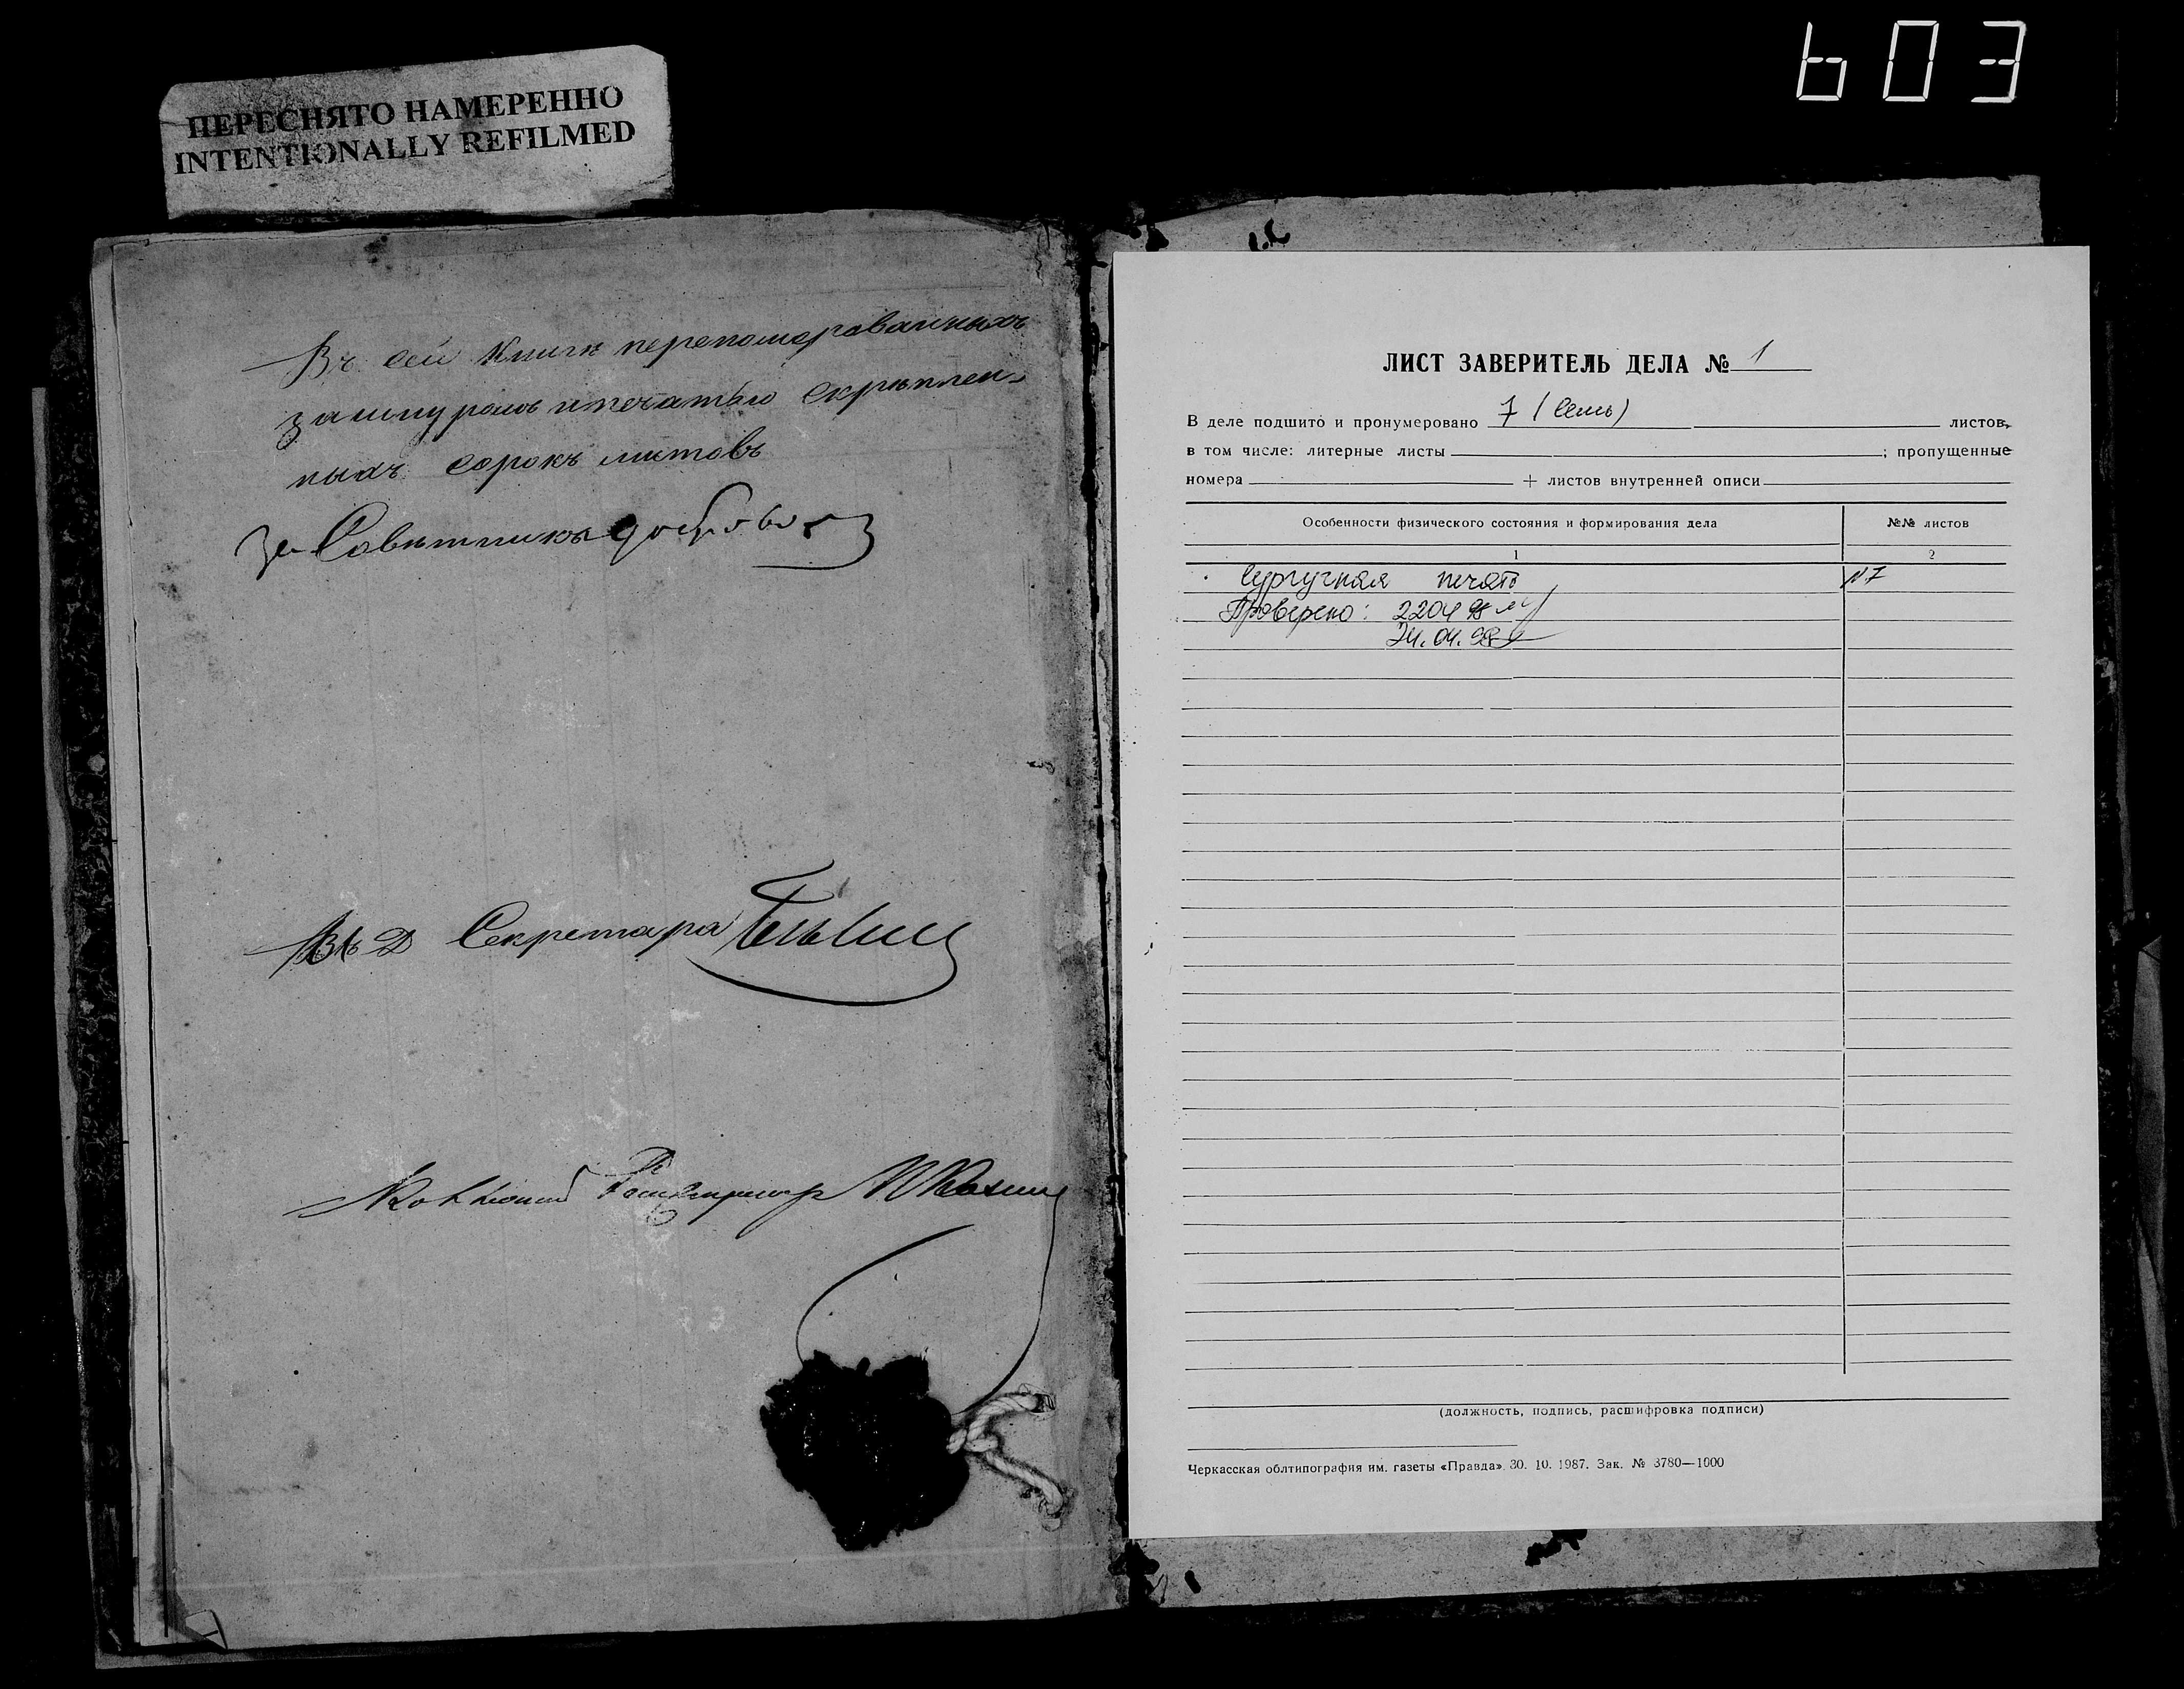 603
ПЕРЕСНЯТО НАМЕРЕННО
INTENTIONALLY REFILMED
Въ сей книге перепомерованныхъ
зашнуромъ ипечатью скрѣплен-
ныхъ сорокъ листовъ
За Совѣтника
Секретаря
Коллежский Регистраторъ
ЛИСТ ЗАВЕРИТЕЛЬ ДЕЛА № 1
В деле подшито и пронумеровано 7 (семь) листов,
в том числе: литерные листы ; пропущенные
номера + листов внутренней описи
Особенности физического состояния и формирования дела №№ листов
1 2
Сургучная печать №7
Проверено: 2204 98
24.04.98
(должность, подпись, расшифровка подписи)
Черкасская облтипография им. газеты «Правда». 30. 10. 1987. Зак. № 3780—1000